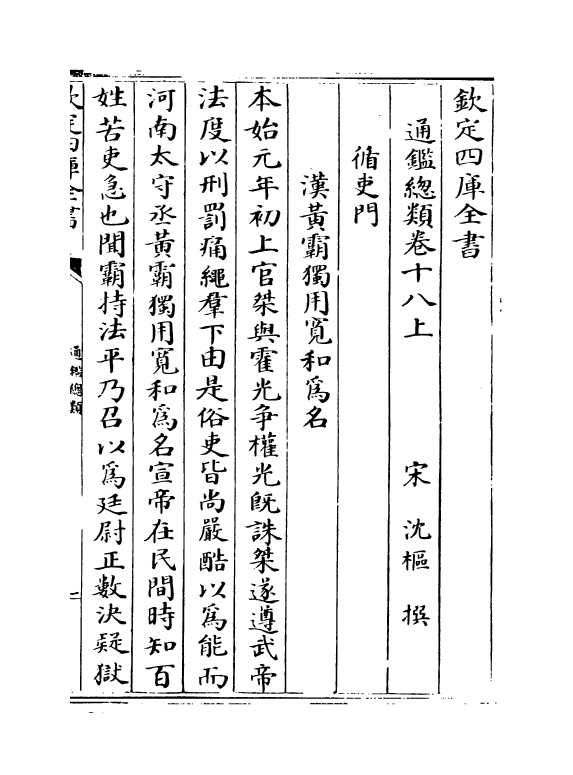 欽定四庫全書
通鑑總類卷十八上
宋 沈樞 撰
循吏門
漢黃霸獨用寛和爲名
本始元年初上官桀與霍光争權光既誅桀遂遵武帝
法度以刑罰痛繩羣下由是俗吏皆尚嚴酷以爲能而
河南太守丞黃霸獨用寛和爲名宣帝在民間時知百
姓苦吏急也聞霸持法平乃召以爲廷尉正數決疑獄
欽定四庫全書
通鑑總類